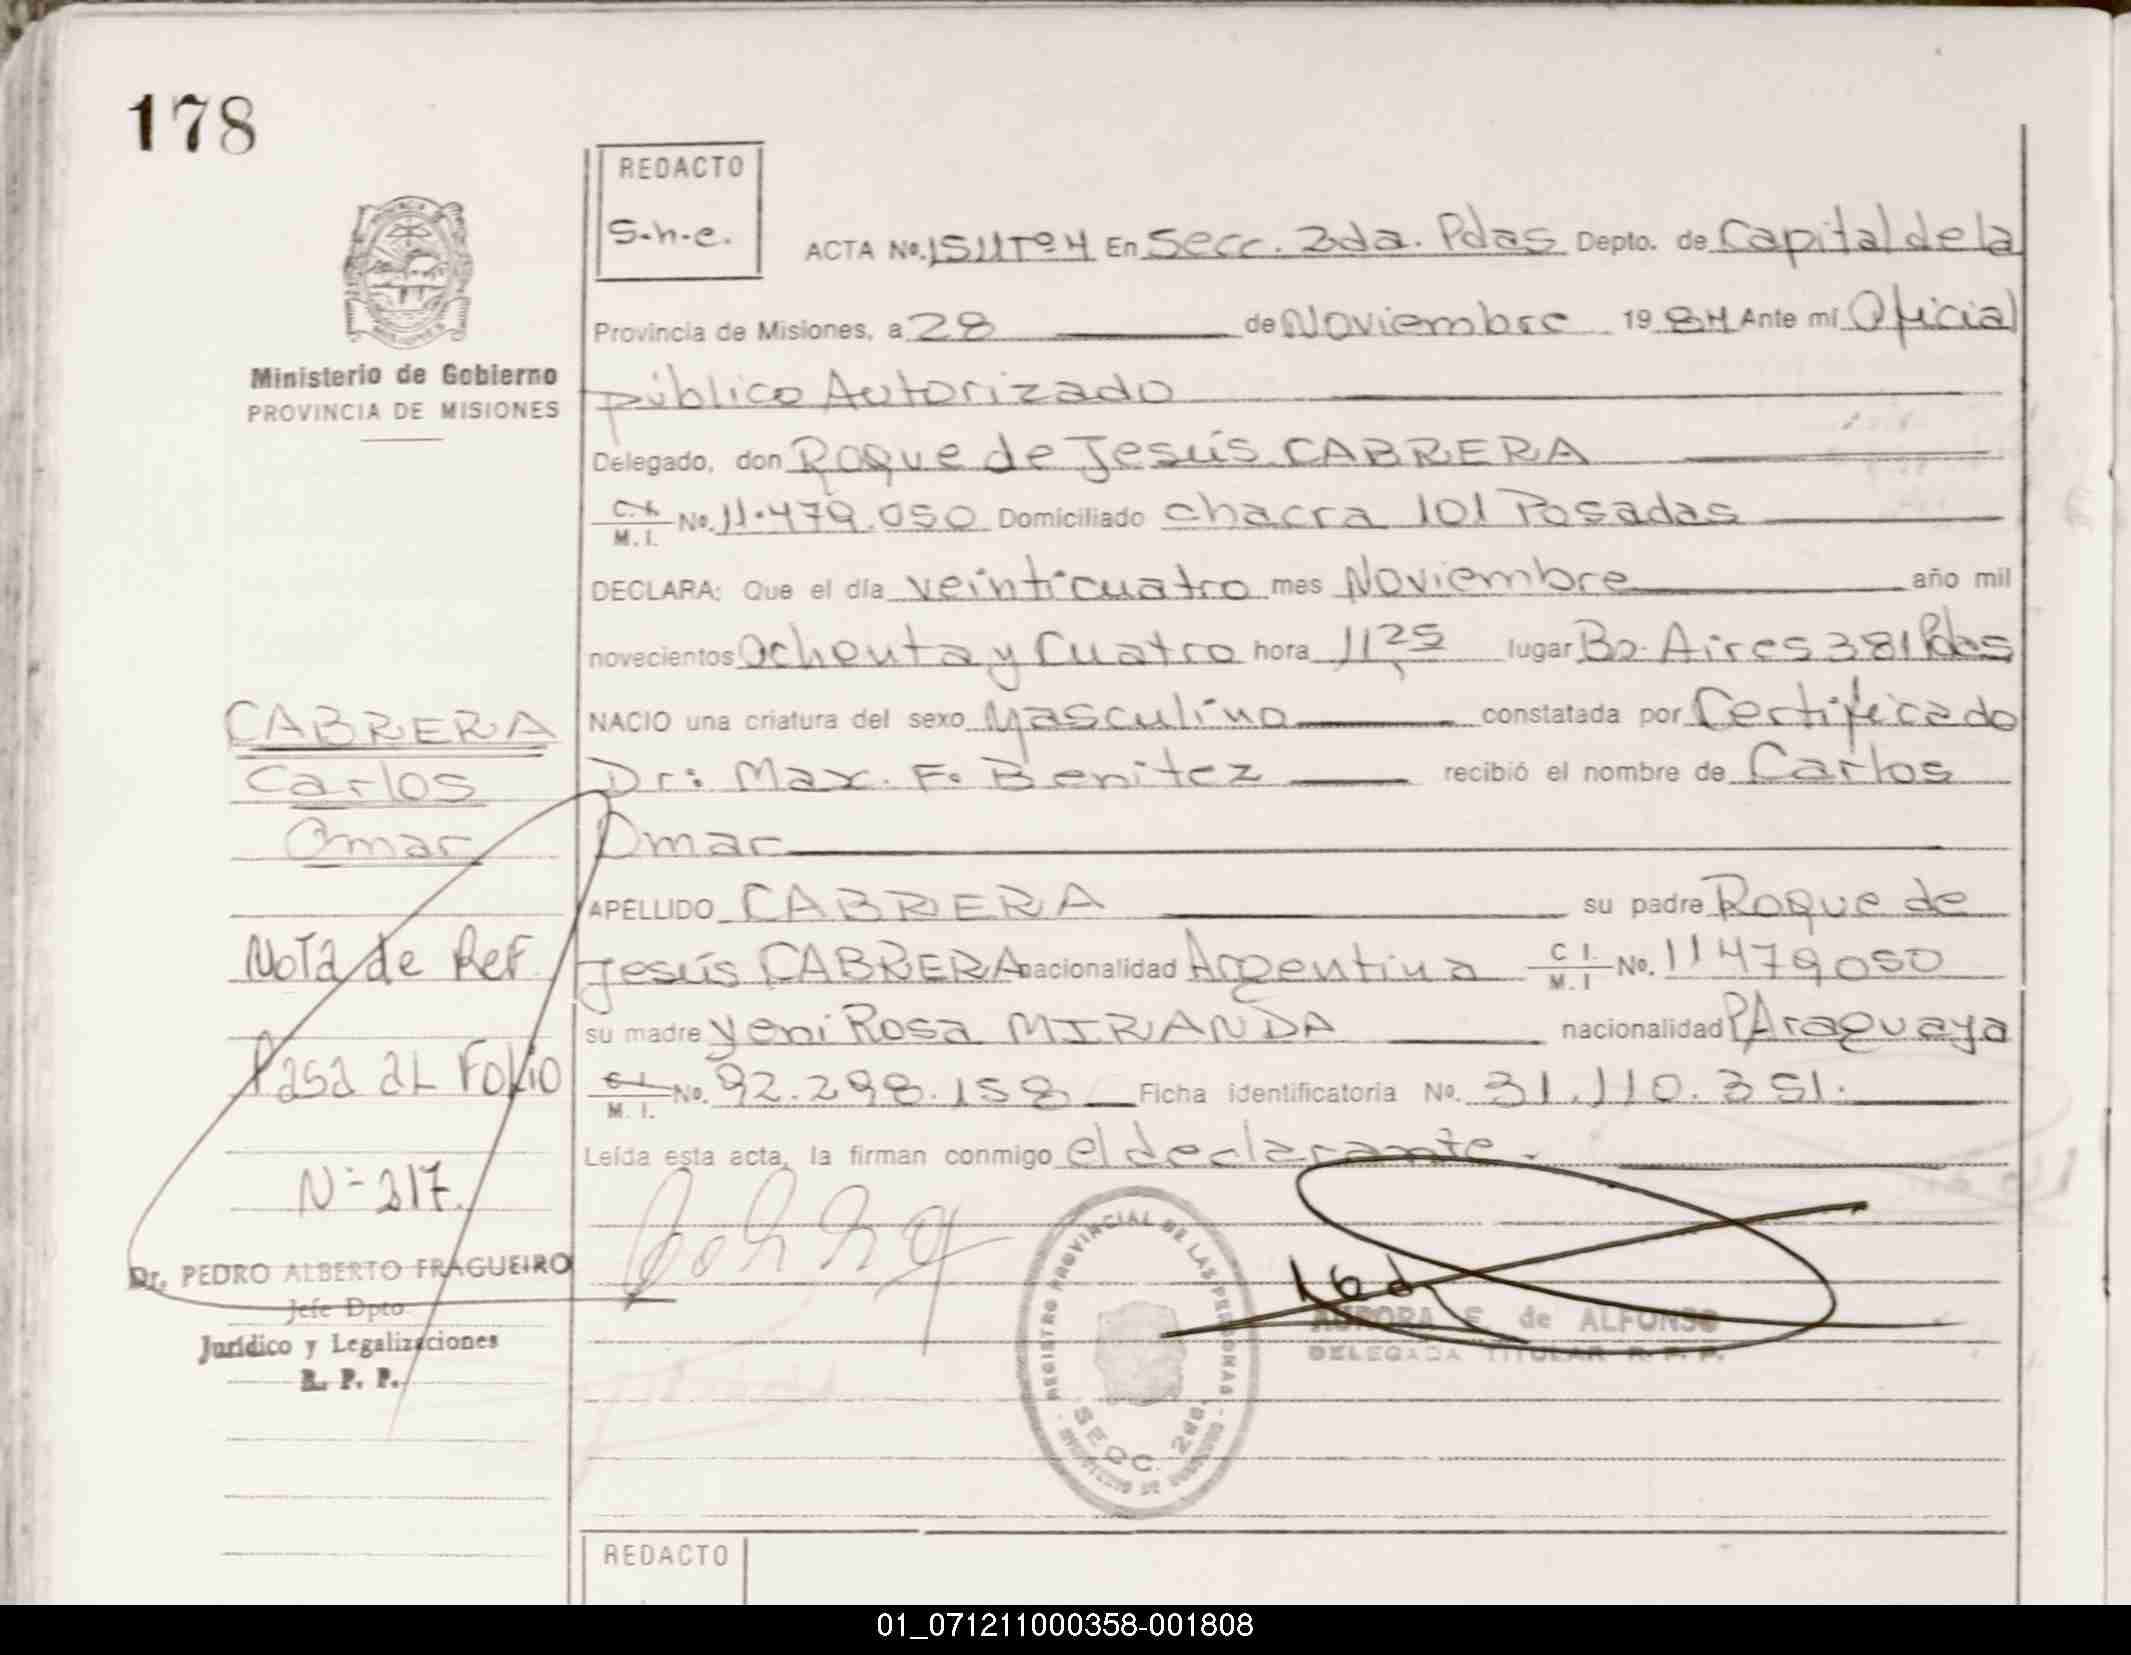 178
REDACTO
S-h-e.
ACTA No. 1511Tº4 En Secc. 2da. Pdas Depto. de Capital de la
Provincia de Misiones, a 28 de Noviembre 1984 Ante mí Oficial
Ministerio de Gobierno
PROVINCIA DE MISIONES
público Autorizado
Delegado, don Roque de Jesús CABRERA
C.I. M.I. No. 11.479.050 Domiciliado chacra 101 Posadas
DECLARA: Que el día veinticuatro mes Noviembre año mil
novecientos ochenta y cuatro hora 11,25 lugar Bs. Aires 381 Pdas
NACIO una criatura del sexo Masculino constatada por Certificado
Dr: Max. F. Benitez recibió el nombre de Carlos
Omar
APELLIDO CABRERA su padre Roque de
Jesús CABRERA nacionalidad Argentina C I. M. I No. 11479050
su madre Yeni Rosa MIRANDA nacionalidad PAraguaya
C.I. M. I. No. 92.298.158 Ficha identificatoria No. 31.110.351.
Leída esta acta, la firman conmigo el declarante.
CABRERA
Carlos
Omar
Nota de Ref.
Pasa al Folio
Nº 217.
Dr. PEDRO ALBERTO FRAGUEIRO
Jefe Dpto.
Jurídico y Legalizaciones
R. P. P.
REGISTRO PROVINCIAL DE LAS PERSONAS
SECC. 2da.
AURORA E. de ALFONSO
DELEGADA TITULAR R. P. P.
REDACTO
01_071211000358-001808